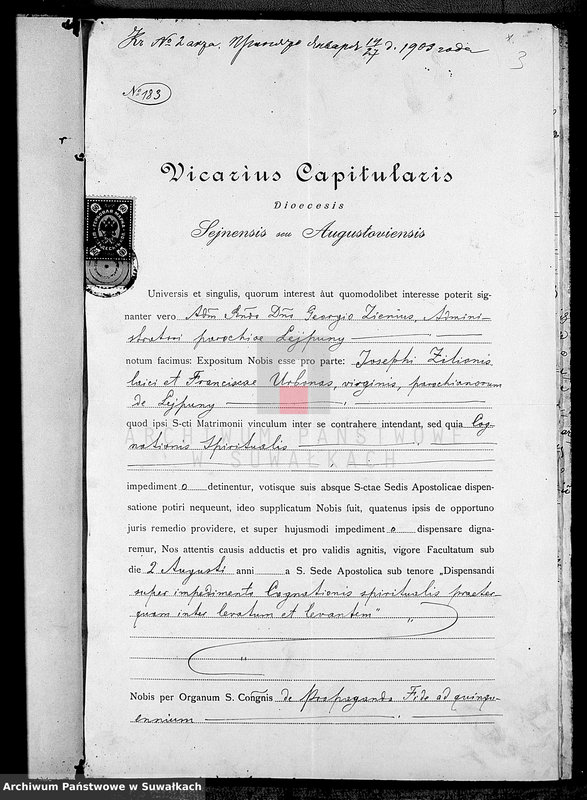 Къ № 2 акта. Января 14/27 д. 1903 года
3
№ 183
Vicarius Capitularis
Dioecesis
Sejnensis seu Augustoviensis
Universis et singulis, quorum interest aut quomodolibet interesse poterit sig-
nanter vero Adm Rndo Dno Georgio Zienius, Admini-
stratori parochiae Lejpuny
notum facimus: Expositum Nobis esse pro parte: Josephi Zilionis
laici et Franciscae Urbonas, virginis, parochianorum
de Lejpuny
quod ipsi S-cti Matrimonii vinculum inter se contrahere intendant, sed quia Cog-
nationis Spiritualis
ARCHIWUM PAŃSTWOWE
W SUWAŁKACH
impediment o detinentur, votisque suis absque S-ctae Sedis Apostolicae dispen-
satione potiri nequeunt, ideo supplicatum Nobis fuit, quatenus ipsis de opportuno
juris remedio providere, et super hujusmodi impediment o dispensare digna-
remur, Nos attentis causis adductis et pro validis agnitis, vigore Facultatum sub
die 2 Augusti anni a S. Sede Apostolica sub tenore „Dispensandi
super impedimento Cognationis spiritualis praeter-
quam inter levatum et levantem"
Nobis per Organum S. Congñis de Propaganda Fide ad quinqu-
ennium
Archiwum Państwowe w Suwałkach